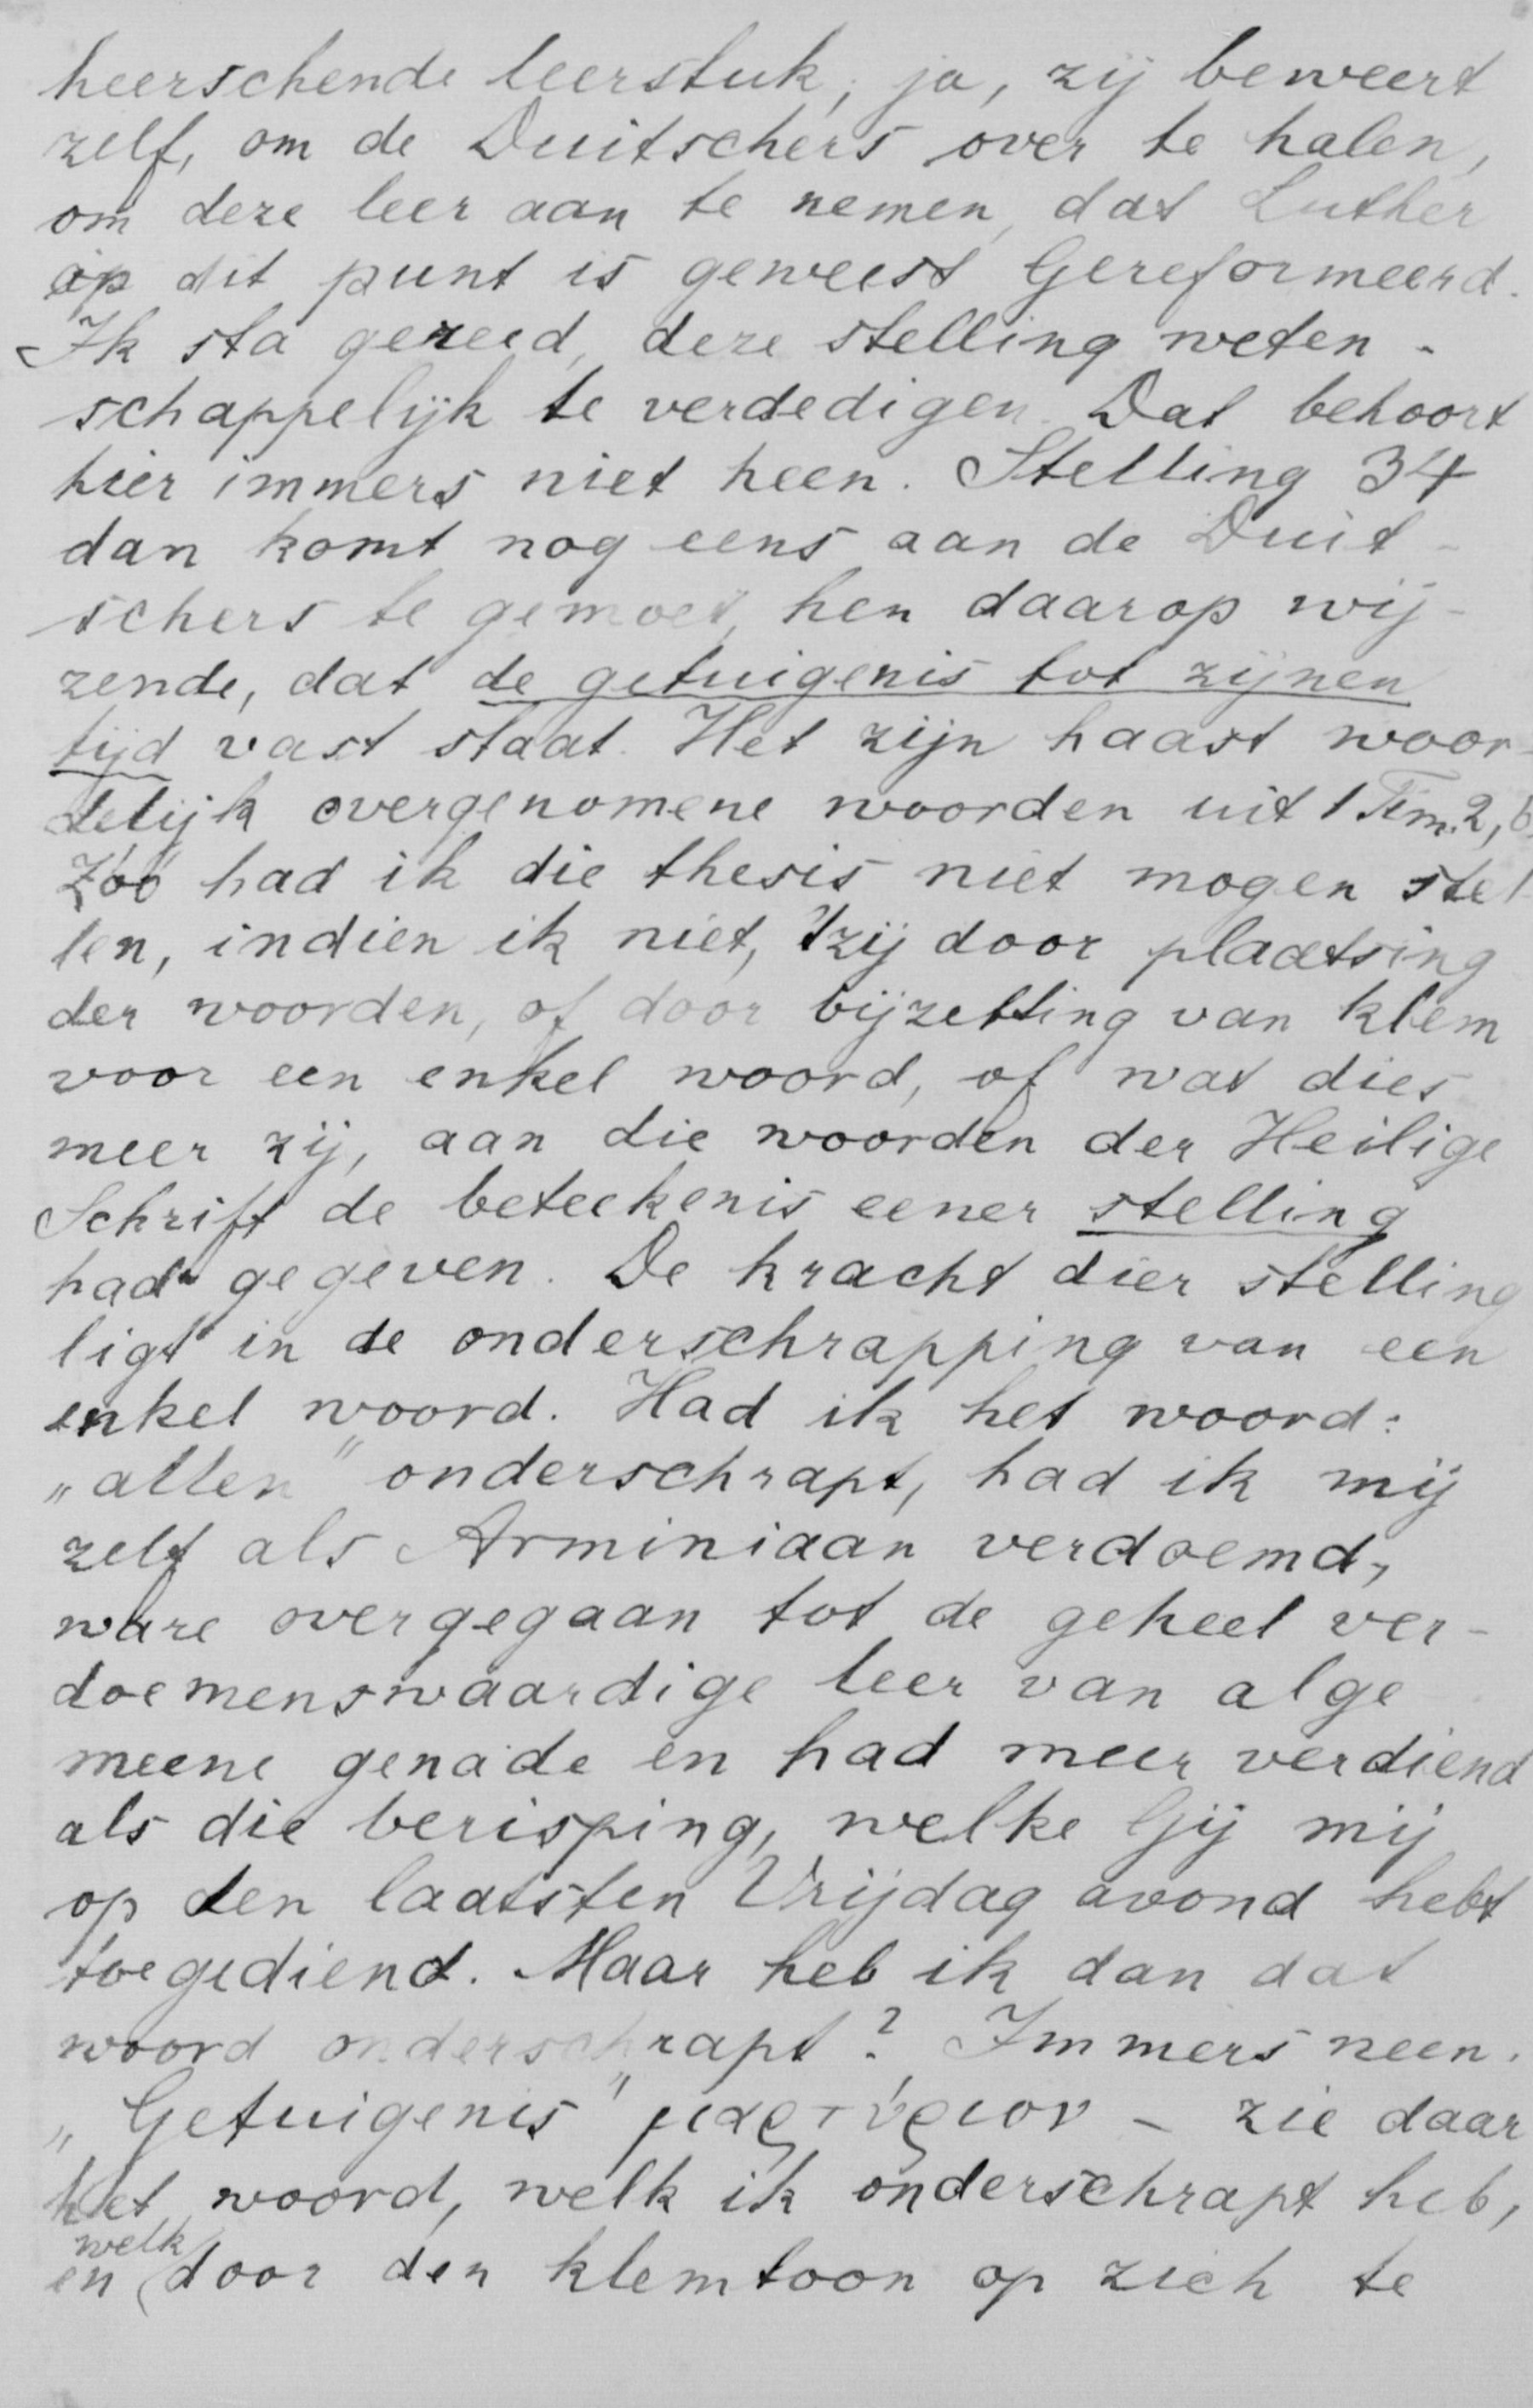 heerschende leerstuk, ja, zij beweert
zelf, om de Duitschers over te halen,
om deze leer aan te nemen, dat Luther
op dit punt is geweest Gereformeerd.
Ik sta gereed, deze stelling weten-
schappelijk te verdedigen. Dat behoort
hier immers niet heen. Stelling 34
dan komt nog eens aan de Duit-
schers te gemoet, hen daarop wij-
zende, dat de getuigenis tot zijnen
tijd vast staat. Het zijn haast woor-
delijk overgenomene woorden uit 1 Tim. 2, 6
Zóó had ik die thesis niet mogen stel-
len, indien ik niet, 'tzij door plaatsing
der woorden, of door bijzetting van klem
voor een enkel woord, of wat dies
meer zij, aan die woorden der Heilige
Schrift de beteekenis eener stelling
had gegeven. De kracht dier stelling
ligt in de onderschrapping van een
enkel woord. Had ik het woord:
„allen” onderschrapt, had ik mij
zelf als Arminiaan verdoemd,
ware overgegaan tot de geheel ver-
doemenswaardige leer van alge
meene genade en had meer verdiend
als die berisping, welke Gij mij
op den laatsten Vrijdag avond hebt
toegediend. Maar heb ik dan dat
woord onderschrapt? Immers neen.
„Getuigenis” μαρτύριον – zie daar
het woord, welk ik onderschrapt heb,
welk
en door den klemtoon op zich te